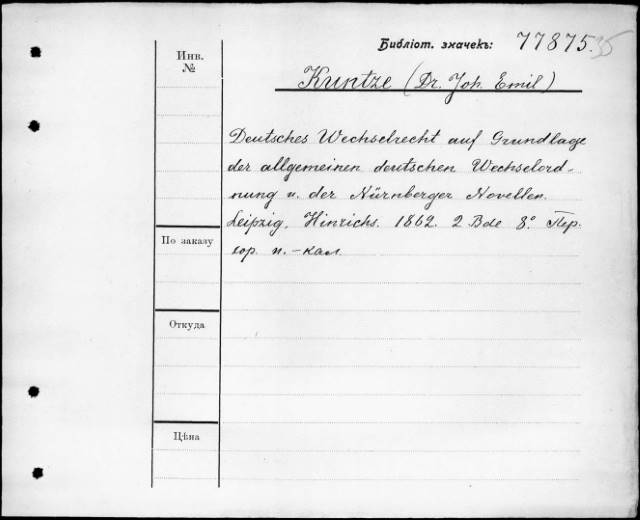 Библіот. значекъ: 77875.35
Инв.
№
Kuntze (Dr. Joh. Emil)
Deutsches Wechselrecht auf Grundlage
der allgemeinen deutschen Wechselord-
nung u. der Nürnberger Novellen.
Leipzig, Hinrichs. 1862. 2 Bde 8°. Пер.
кор. и.-кал.
По заказу
Откуда
Цѣна